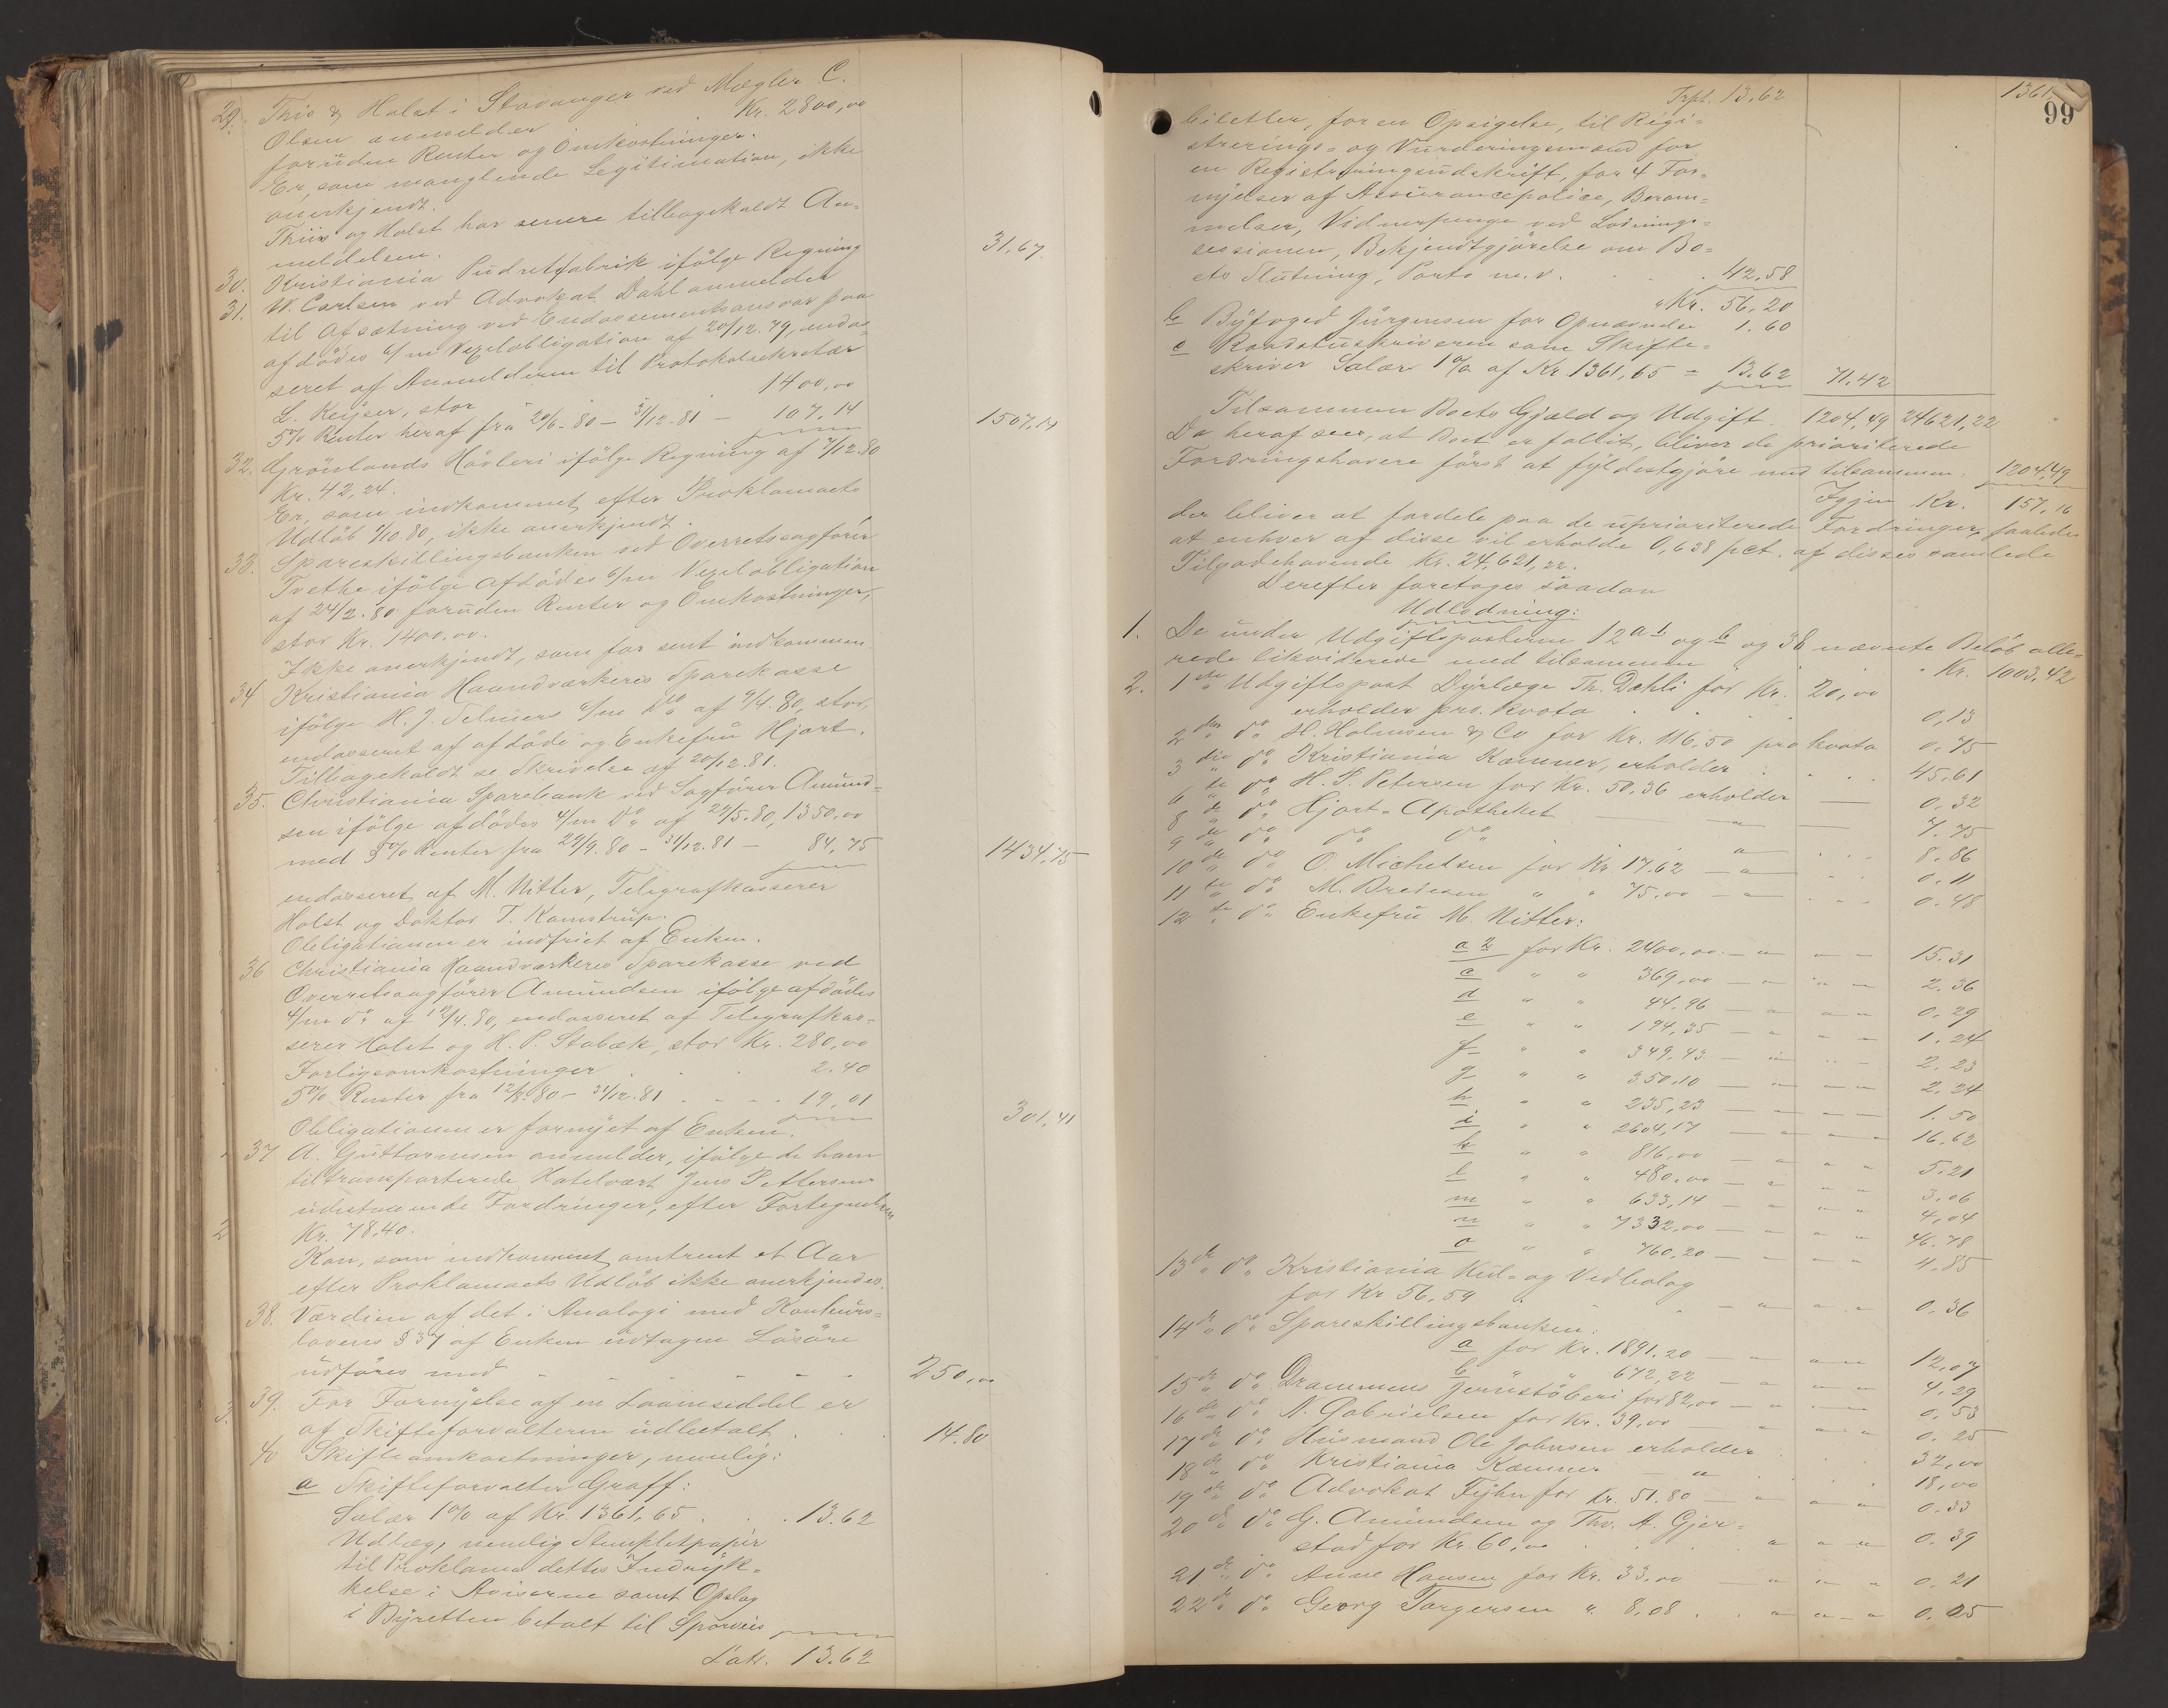 29. Thiis & Holst i Stavanger ved Mægler C.
Olsen anmelder Kr. 2800,00
foruden Renter og Omkostninger.
Er, som manglende Legitimation, ikke
anerkjendt.
Thiis og Holst har senere tilbagekaldt An-
meldelsen.
30. Kristiania Pudretfabrik ifølge Regning 31.67.
31. W. Carlsen ved Advokat Dahl anmelder
til Afsætning ved Endossementsansvar paa
afdødes 6/m Vexelobligation af 20/12.79, endos-
seret af Anmelderen til Protokolsekretær
L. Keyser, stor 1400,00
5% Renter heraf fra 20/6.80 – 31/12.81 – 107,14 1507,14
32. Grønlands Høvleri ifølge Regning af 7/12.80
Kr. 42,24.
Er, som indkommet efter Proklamaets
Udløb 1/10.80, ikke anerkjendt.
33. Spareskillingsbanken ved Overretssagfører
Trethe ifølge afdødes 6/m Vexelobligation
af 24/2.80 foruden Renter og Omkostninger,
stor Kr. 1400,00.
Ikke anerkjendt, som for sent indkommen.
34 Kristiania Haandværkeres Sparekasse
ifølge H. J. Telniers 6/m Do af 9/4.80, stor,
endosseret af afdøde og Enkefru Hjort.
Tilbagekaldt se Skrivelse af 20/12.81.
35. Christiania Sparebank ved Sagfører Amund-
sen ifølge afdødes 4/m Do af 29/5.80, 1350,00
med 5% Renter fra 29/9.80 – 31/12.81 – 84,75 1434,75
endosseret af M. Nitter, Telegrafkasserer
Holst og Doktor T. Kamstrup.
Obligationen er indfriet af Enken.
36 Christiania Haandværkeres Sparekasse ved
Overretssagfører Amundsen ifølge afdødes
4/m do af 12/4.80, endosseret af Telegrafkas-
serer Holst og H. P. Stabæk, stor Kr. 280,00
Forligsomkostninger 2.40
5% Renter fra 12/8.80 – 31/12.81 19,01 301,41
Obligationen er fornyet af Enken.
37 A. Guttormsen anmelder, ifølge de ham
tiltransporterede Hotelvært Jens Pettersens
udestaaende Fordringer, efter Fortegnelsen
Kr. 78,40.
Kan, som indkommet omtrent et Aar
efter Proklamaets Udløb ikke anerkjendes.
38. Værdien af det i Analogi med Konkurs-
lovens § 37 af Enken udtagne Løsøre
udføres med 250,00
39. For Fornyelse af en Laaneseddel er
af Skifteforvalteren udbetalt 14.80
40 Skifteomkostninger, nemlig:
a Skifteforvalter Graff:
Salær 1% af Kr. 1361,65 13.62
Udlæg, nemlig Stempletpapir
til Proklama dettes Indryk-
kelse i Aviserne samt Opslag
i Byretten betalt til Sporveis
Latr. 13.62
Trpt. 13,62 1361,
99
biletter, for en Opsigelse, til Regi-
strerings- og Vurderingsmænd for
en Registreringsudskrift, for 4 For-
nyelser af Assurancepolice, Beram-
melser, Vidnepenge ved Lodnings-
sessionen, Bekjendtgjørelse om Bo-
ets Slutning, Porto m.v. 42,58
Kr. 56,20
b Byfoged Jürgensen for Opnævnelse 1.60
c Raadstuskriveren som Skifte-
skriver Salær 1% af Kr 1361,65 = 13.62 71.42
Tilsammen Boets Gjæld og Udgift 1204,49 24621,22
Da heraf sees, at Boet er fallit, bliver de prioriterede
Fordringshavere først at fyldestgjøre med tilsammen 1204,49
Igjen Kr. 157,16
der bliver at fordele paa de uprioriterede Fordringer, saaledes
at enhver af disse vil erholde 0,638 pct. af disses samlede
Tilgodehavende Kr. 24,621,22.
Derefter foretoges saadan
Udlodning:
1. De under Udgiftsposterne 12a1 og b og 38 nævnte Beløb alle-
rede likviderede med tilsammen Kr. 1003,42
2. 1ste Udgiftspost Dyrlæge Th. Dahli for Kr. 20,00
erholder pro. kvota 0,13
2den do H. Holmsen & Co for Kr. 116,50 pro kvota 0.75
3die do Kristiania Kæmner, erholder 45,61
6te do H. P. Petersen for Kr. 50,36 erholder 0.32
8de do Hjort-Apotheket 7.75
9de do do do 8.86
10de do O. Michelsen for Kr. 17.62 0.11
11te do M. Bredesen " " 75,00 0.48
12te do Enkefru M. Nitter:
a 2 for Kr. 2400,00 15.31
c " " 369,00 2.36
d " " 44.96 0.29
e " " 194,35 1.24
f " " 349,43 2.23
g " " 350,10 2.24
h " " 235,23 1.50
i " " 2604,17 16.62
k " " 816,00 5.21
l " " 480,00 3.06
m " " 633,14 4,04
n " " 7332,00 46.78
o " " 760,20 4.85
13de do Kristiania Kul- og Vedbolag
for Kr 56,59 0.36
14de do Spareskillingsbanken:
a for Kr. 1891.20 12,07
b " " 672,22 4.29
15de do Drammens Jernstøberi for 82,00 0.53
16de do N. Gabrielsen for Kr. 39,00 0.25
17de do Husmand Ole Johnsen erholder 32,00
18de do Kristiania Kæmner 18,00
19de do Advokat Fyhn for Kr. 51.80 0.33
20de do G. Amundsen og Thv. A. Gjer-
stad for Kr. 60,00 0.39
21de do Anne Hansen for Kr. 33,00 0.21
22de do Georg Torgersen " 8,08 0.05